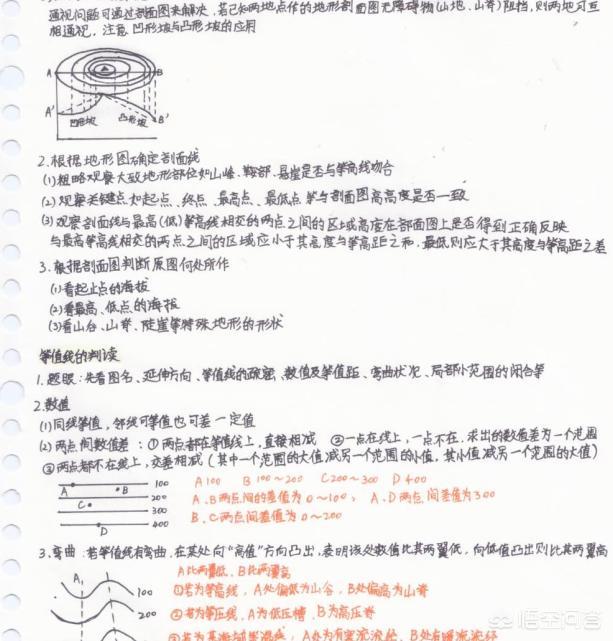 通视问题可通过剖面图来解决，若已知两地点作的地形剖面图无障碍物(山地、山脊)阻挡，则两地可互
相通视，注意凹形坡与凸形坡的应用
A B
A' 凹形坡 凸形坡 B'
2.根据地形图确定剖面线
(1)粗略观察大致地形部位如山峰、鞍部、悬崖是否与等高线吻合
(2)观察关键点如起点、终点、最高点、最低点等与剖面图高高度是否一致
(3)观察剖面线与最高(低)等高线相交的两点之间的区域高度在部面图上是否得到正确反映
与最高等高线相交的两点之间的区域应小于其高度与等高距之和，最低则应大于其高度与等高距之差
3.根据剖面图判断原图何处所作
(1)看起止点的海拔
(2)看最高、低点的海拔
(3)看山谷、山脊、陡崖等特殊地形的形状
等值线的判读
1.题眼：先看图名、延伸方向、等值线的疏密、数值及等值距、弯曲状况、局部小范围的闭合等
2.数值
(1)同线等值，邻线可等值也可差一定值
(2)两点间数值差：①两点都在等值线上，直接相减 ②一点在线上，一点不在，求出的数值差为一个范围
③两点都不在线上，交差相减(其中一个范围的大值减另一个范围的小值，其小值减另一个范围的大值)
A B 100 A 100 B 100~200 C 200~300 D 400
C 200 A、B两点间的差值为0~100；A、D两点间差值为300
300 B、C两点间差值为0~200
D 400
3.弯曲：若等值线有弯曲，在某处向"高值"方向凸出，表明该处数值比其两翼低，向低值凸出则比其两翼高
A比两翼低，B比两翼高
A 100 ①若为等高线，A处偏低为山谷，B处偏高为山脊
200 ②若为等压线，A为低压槽，B为高压脊
悟空问答